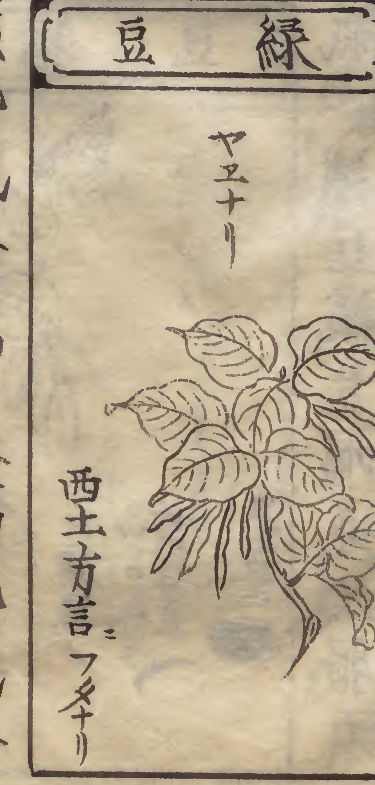 緑豆
ヤヱナリ
西土方言ニフタナリ